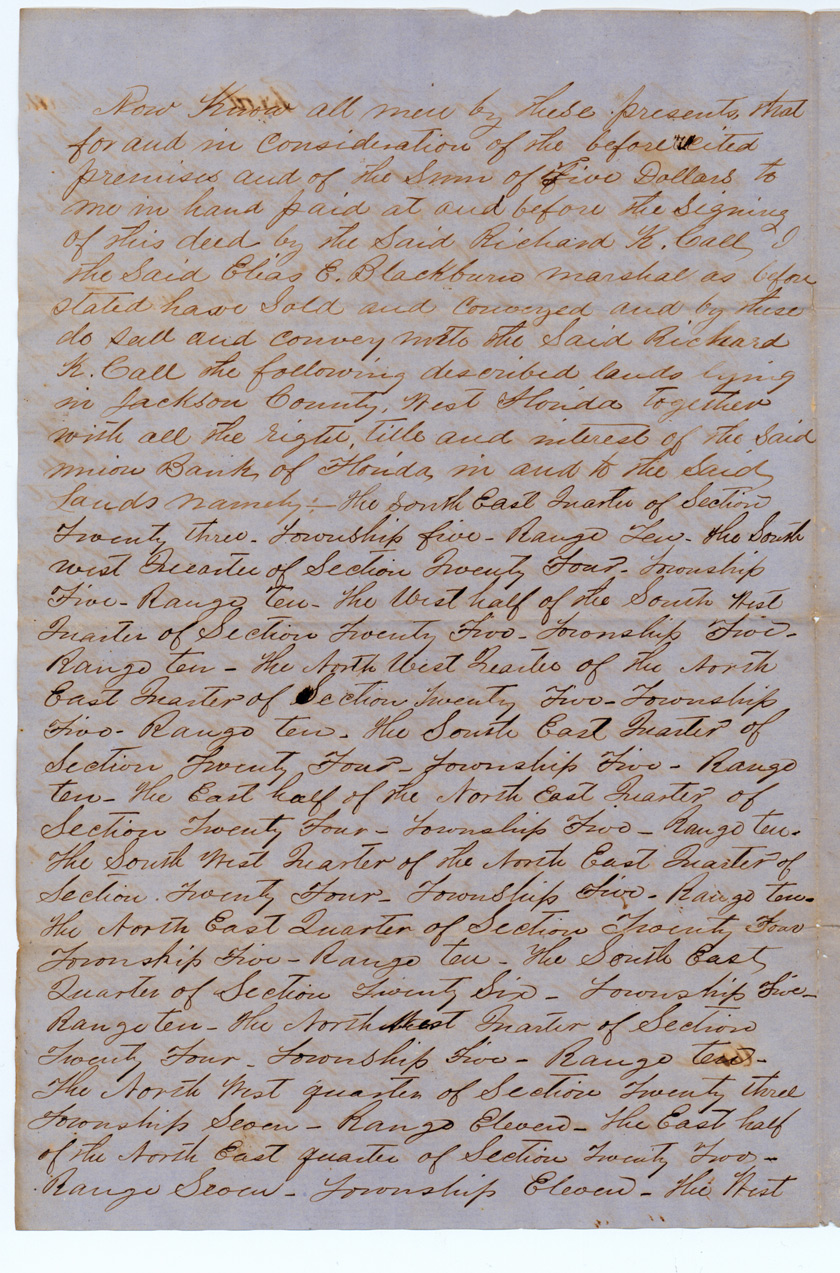 Now Know all men by these presents, that
for and in consideration of the before recited
premises and of the Sum of Five Dollars to
me in hand paid at and before the Signing
of this deed by the Said Richard K. Call, I
the Said Elias E. Blackburn marshal as before
stated have Sold and conveyed and by these
do sell and convey unto the Said Richard
K. Call the following described lands lying
in Jackson County, West Florida together
with all the right, title and interest of the Said
union Bank of Florida in and to the Said
lands namely:— the South East Quarter of Section
Twenty three- Township five- Range Ten- the South
west Quarter of Section Twenty Four- Township
Five- Range ten- the West half of the South West
Quarter of Section Twenty Five- Township Five-
Range ten- the North West Quarter of the North
East Quarter of Section Twenty Five- Township
Five- Range ten- the South East Quarter of
Section Twenty Four- Township Five- Range
ten- the East half of the North East Quarter of
Section Twenty Four- Township Five- Range ten-
the South West Quarter of the North East Quarter of
Section Twenty Four- Township Five- Range ten-
the North East Quarter of Section Twenty Four
Township Five- Range ten- the South East
Quarter of Section Twenty Six- Township Five-
Range ten- the North West Quarter of Section
Twenty Four- Township Five- Range ten-
The North West quarter of Section Twenty three
Township Seven- Range Eleven- the East half
of the North East quarter of Section Twenty Two-
Range Seven- Township Eleven- the West